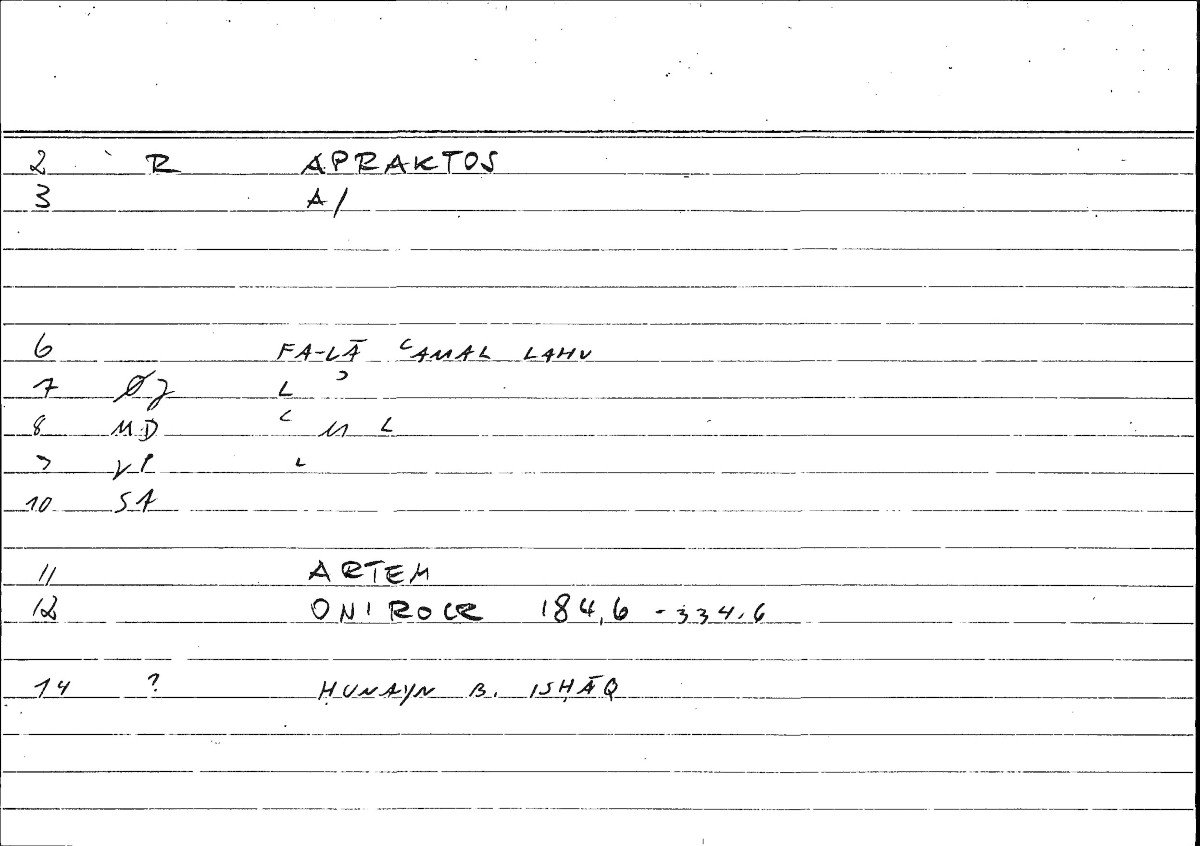 2 R APRAKTOS
3 A/
6 FA-LĀ ʿAMAL LAHU
7 Øj L ʾ
8 MD ʿ M L
9 VP L
10 SA
11 ARTEM
12 ONIROCR 184,6 - 334,6
14 ? ḤUNAYN B. ISḤĀQ